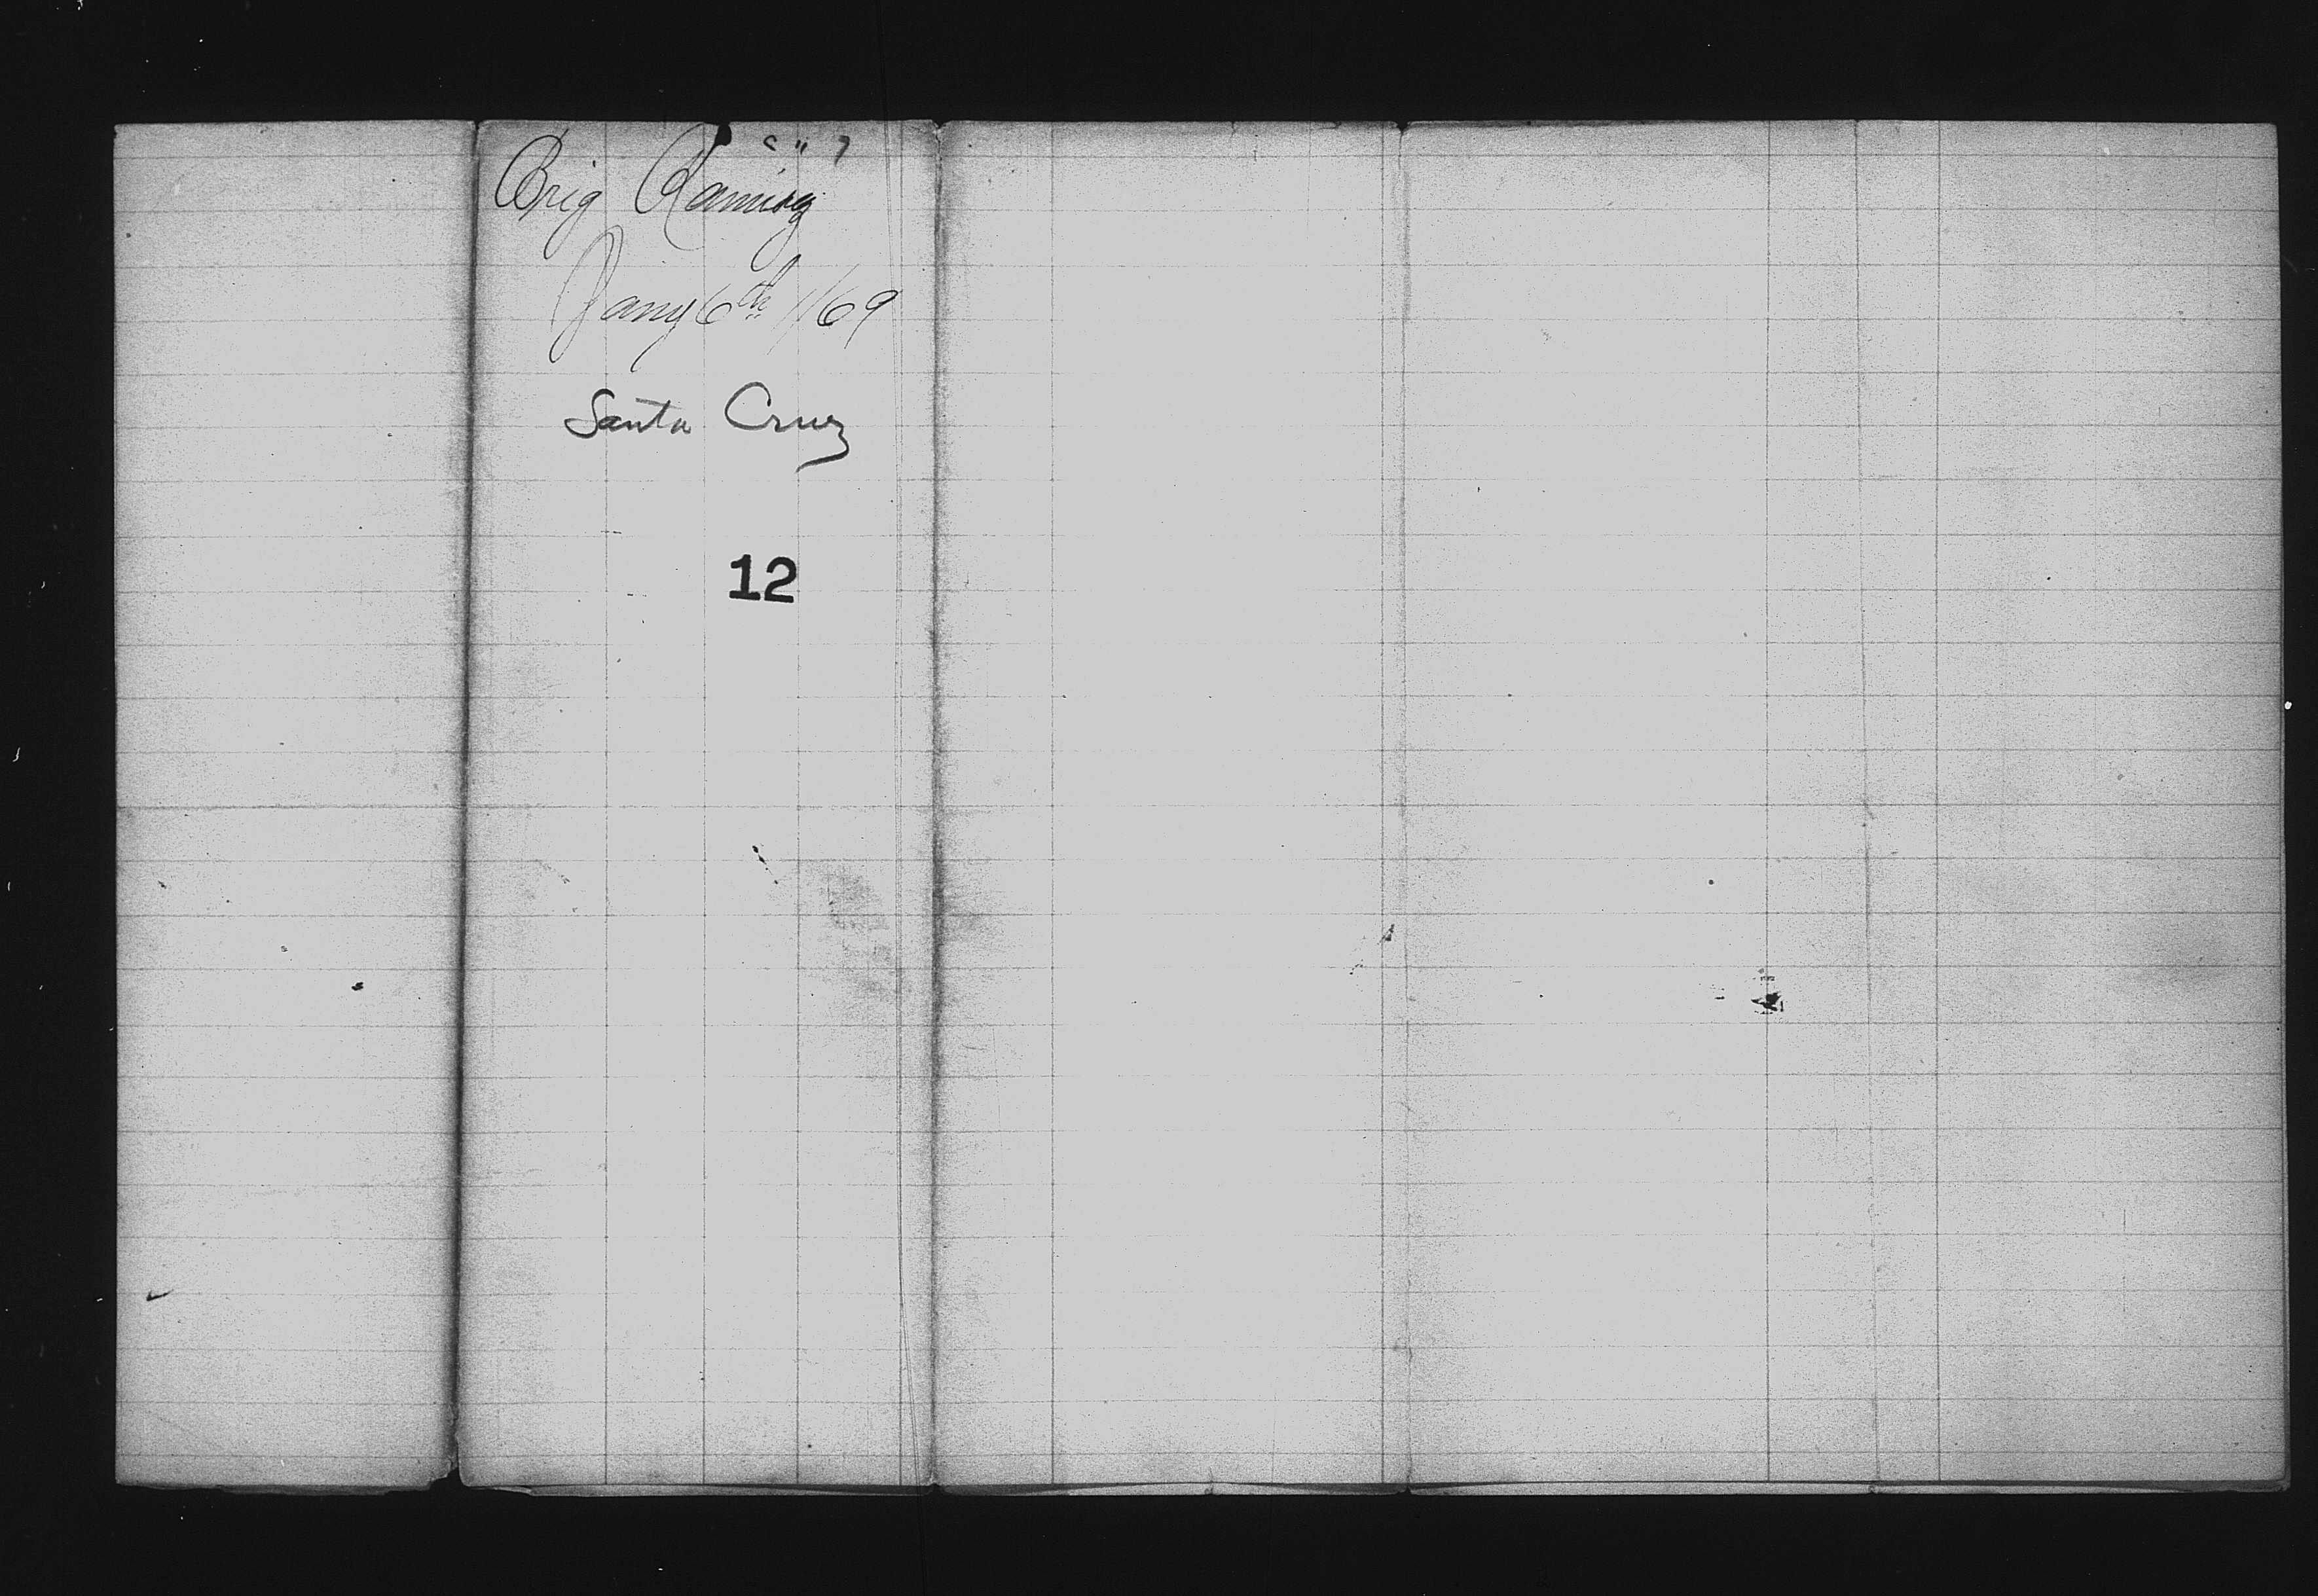 Brig Ramirez
Jany 6th /69
Santa Cruz
12